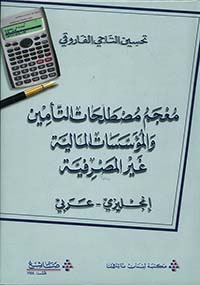 تحسين التاجي الفاروقي
معجم مصطلحات التأمين
والمؤسسات المالية
غير المصرفية
إنجليزي - عربي
مكتبة لبنان ناشرون